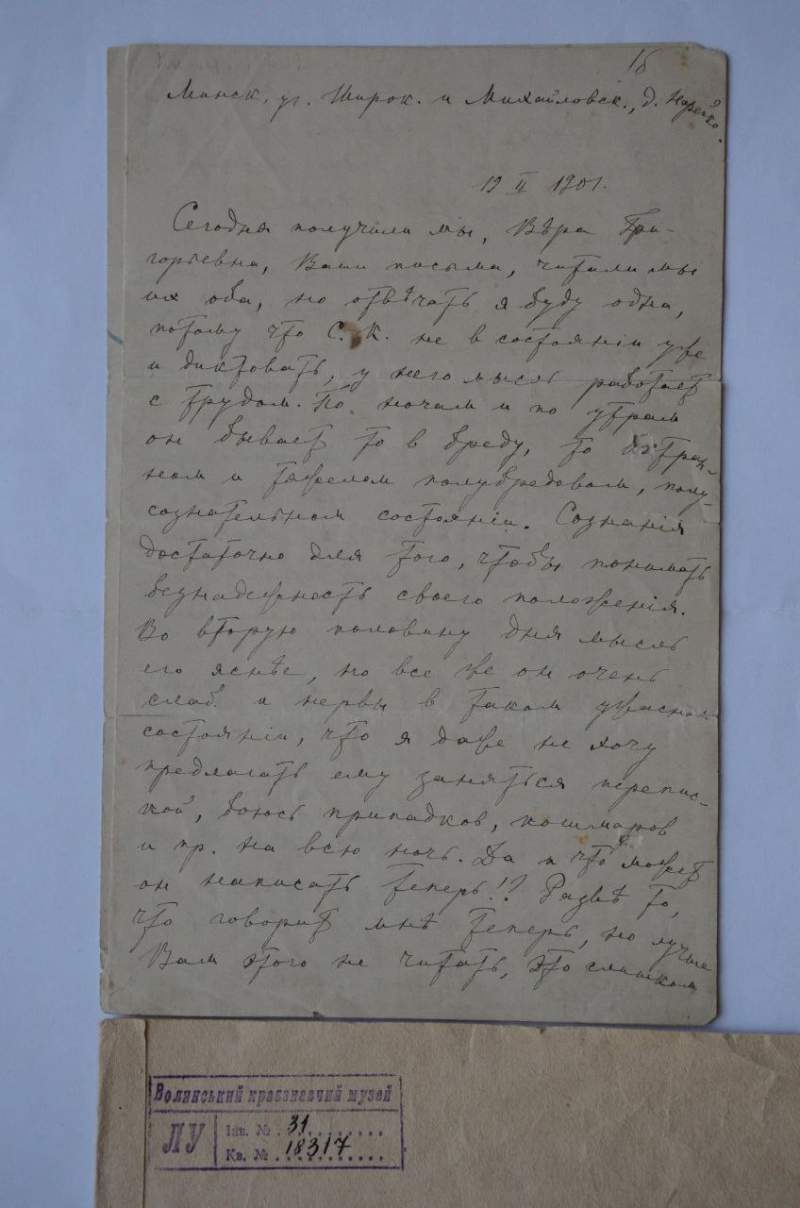 16
Минск, уг. Широк. и Михайловск., д.
19 II 1901.
Сегодня получили мы, Вѣра Гри-
горьевна, Ваши письма, читали мы
их оба, но отвѣчать я буду одна,
потому что С. К. не в состояніи уже
и диктовать, у него мысль работает
с трудом. По ночам и по утрам
он бывает то в бреду, то в стран-
ном и тяжелом полубредовом, полу-
сознательном состояніи. Сознанія
достаточно для того, чтобы понимать
безнадежность своего положенія.
Во вторую половину дня мысль
его яснѣе, но все же он очень
слаб и нервы в таком ужасном
состояніи, что я даже не хочу
предлагать ему заняться перепис-
кой, боюсь припадков, кошмаров
и пр. на всю ночь. Да и что может
он написать теперь!? Развѣ то,
что говорит мнѣ теперь, но лучше
Вам этого не читать, это слишком
Волинський краєзнавчий музей
ЛУ
Інв. № 31
Кв. № 18317